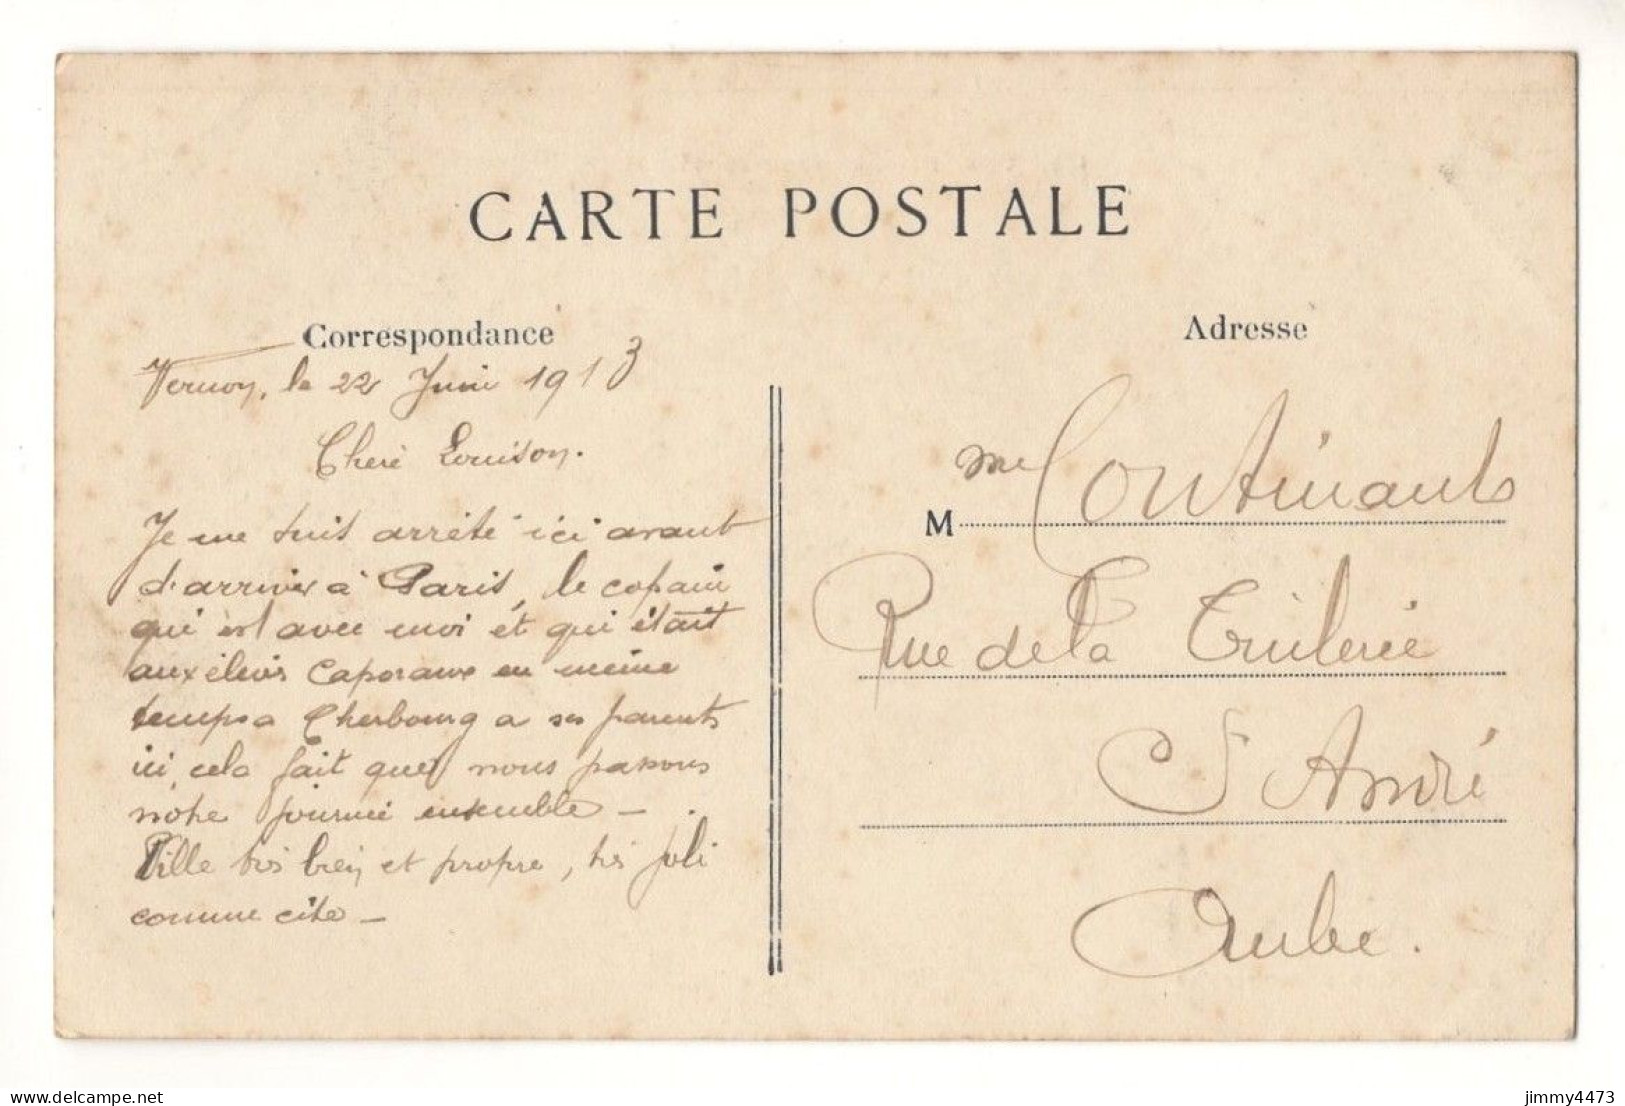 CARTE POSTALE
Correspondance
Vernon, le 22 Juin 1913
Cheri Louison.
Je me suis arrêté ici avant
d'arriver à Paris, le copain
qui est avec moi et qui était
aux élèves Caporaux en même
temps a Cherbourg a ses parents
ici, cela fait que nous passons
notre journée ensemble –
Ville très bien et propre, très joli
comme cite –
Adresse
M me Continant
Rue de la Tuilerie
St André
Aube.
delcampe.net
jimmy4473